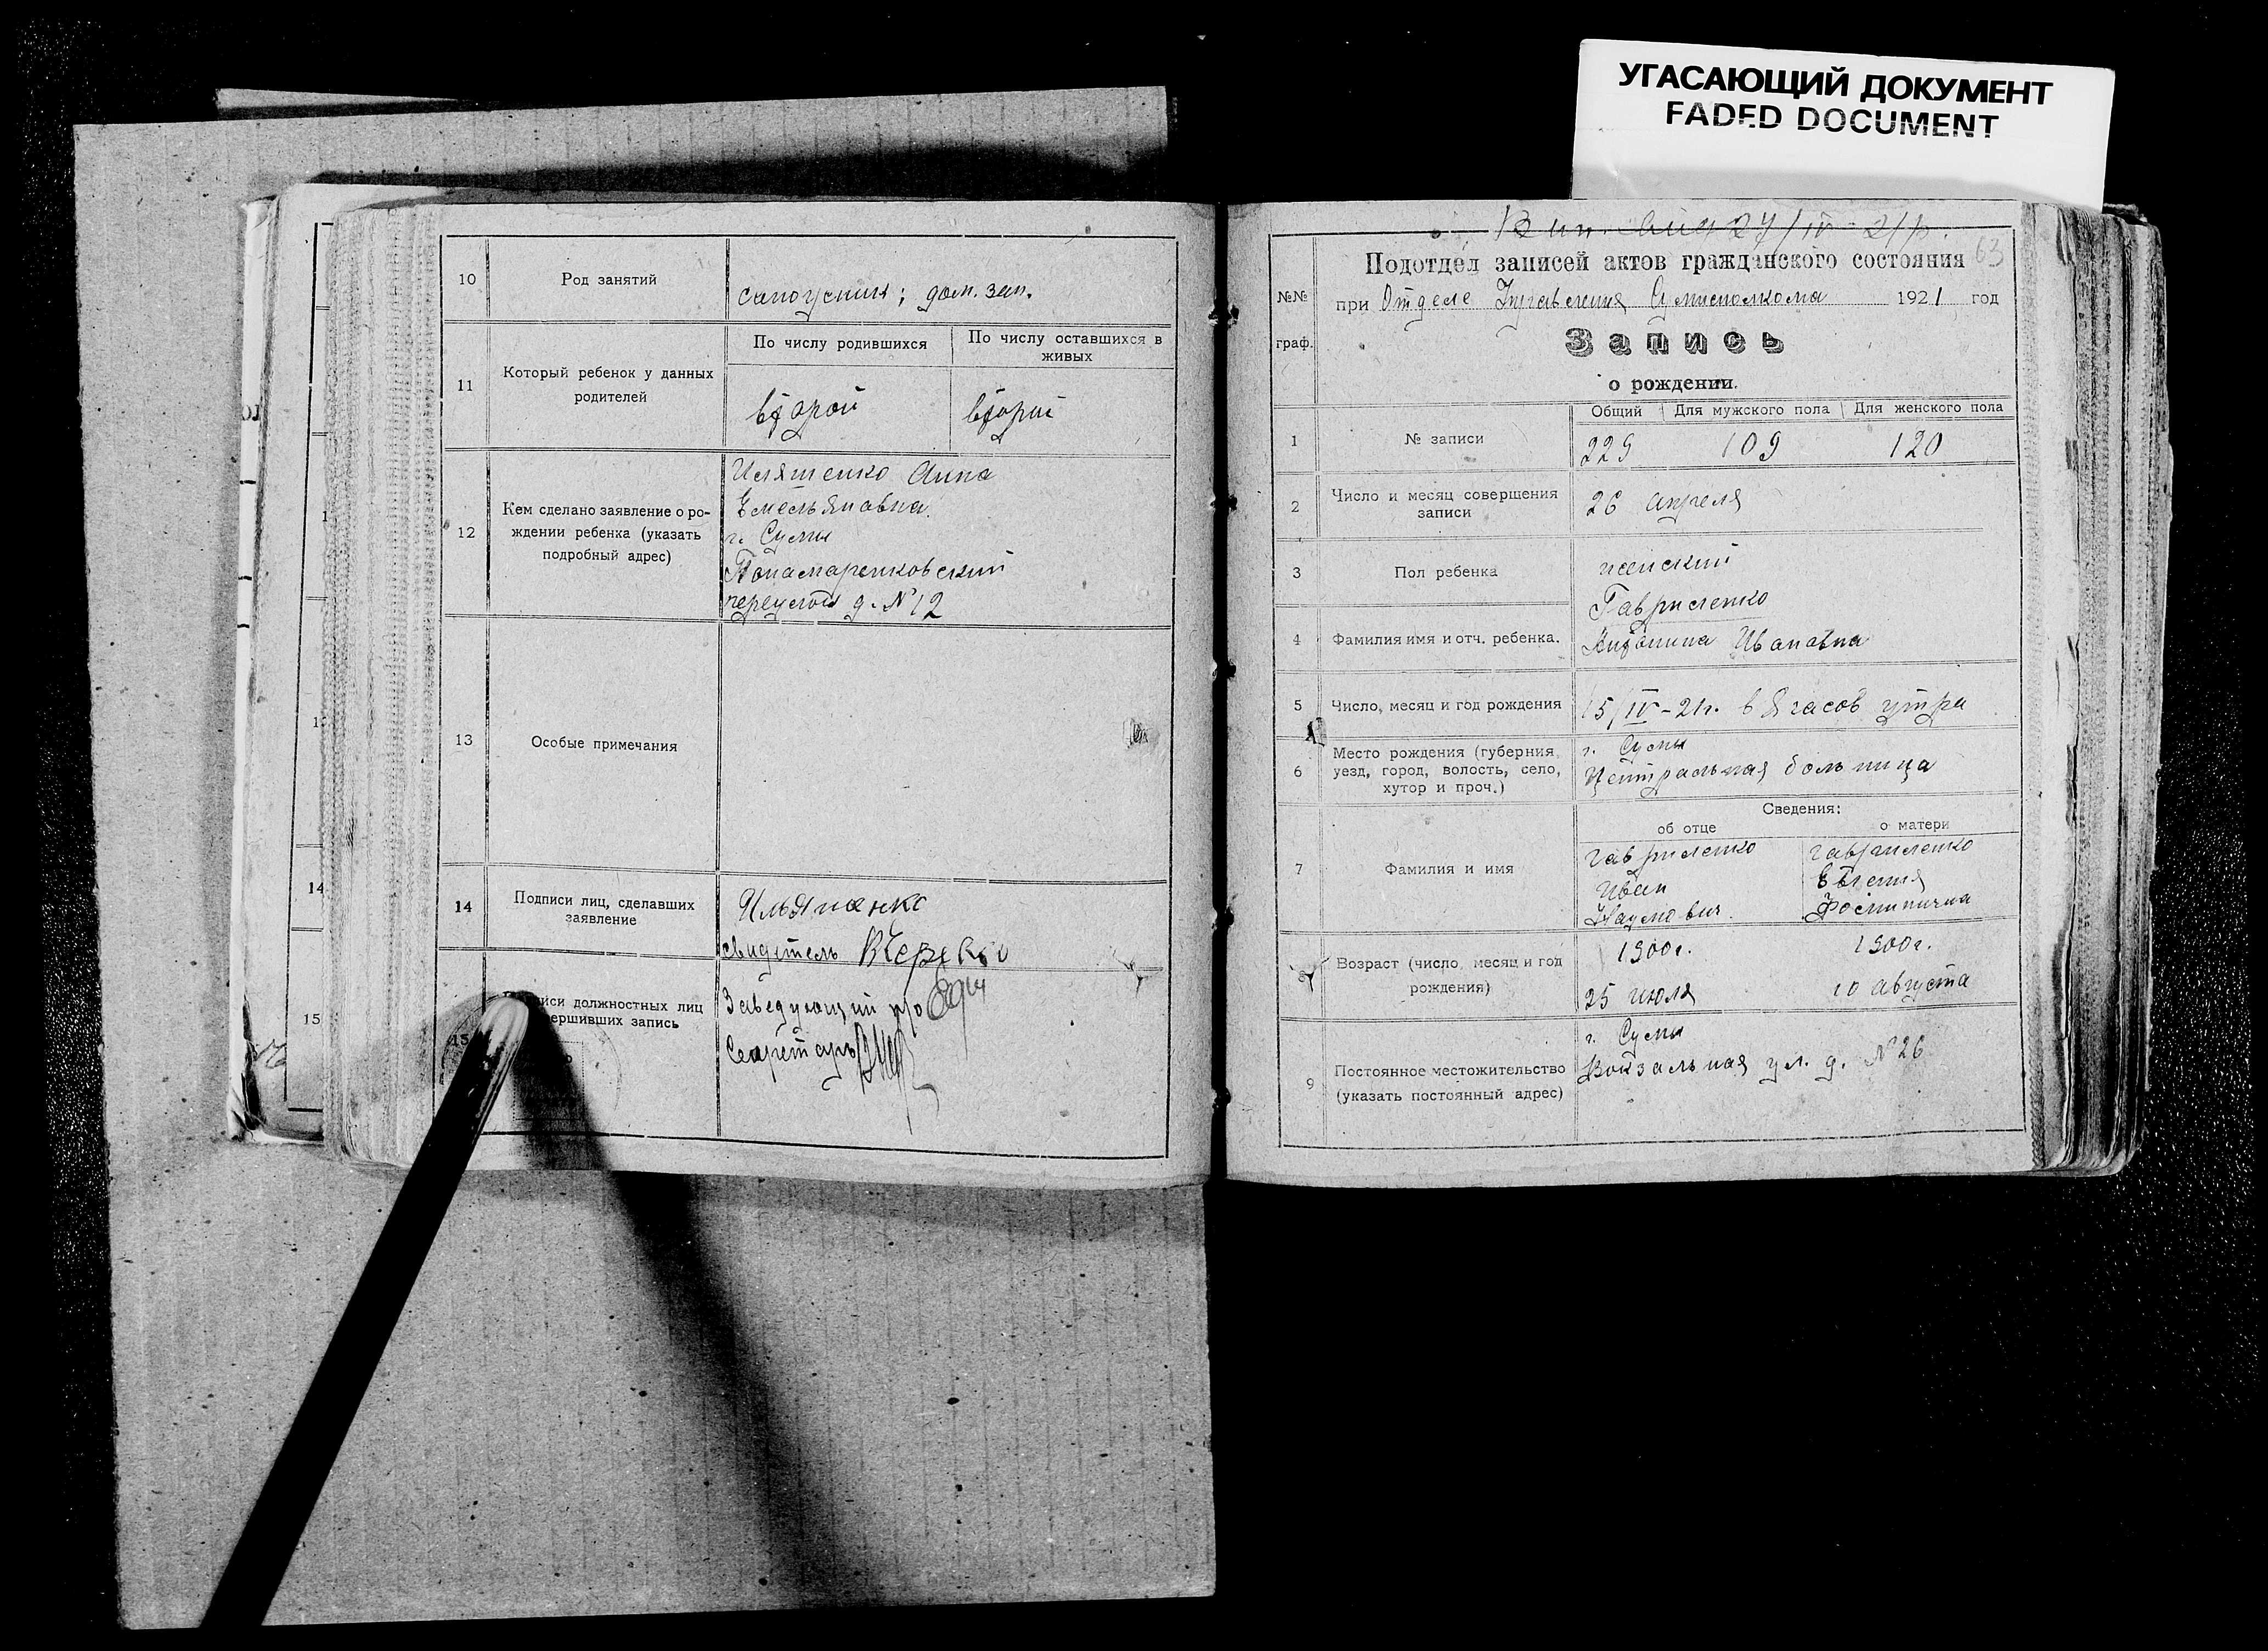 УГАСАЮЩИЙ ДОКУМЕНТ
FADED DOCUMENT
10
Род занятий
сапожник; дом. зан.
11
Который ребенок у данных
родителей
По числу родившихся
По числу оставшихся в
живых
второй
второй
12
Кем сделано заявление о ро-
ждении ребенка (указать
подробный адрес)
Ильяшенко Анна
Емельяновна
г. Сумы
Понамаренковский
переулок д. № 12
13
Особые примечания
14
Подписи лиц, сделавших
заявление
Ильяшенко
свидетель
15
должностных лиц
запись
Заведующий п/о
Секретарь
14
15
27/IV-21
63
Подотдел записей актов гражданского состояния
№№
граф.
при Отделе Управления 1921 год
Запись
о рождении.
Общий Для мужского пола Для женского пола
1
№ записи
229 109 120
2
Число и месяц совершения
записи
26 апреля
3
Пол ребенка
женский
4
Фамилия имя и отч. ребенка.
Гавриленко
Антонина Ивановна
5
Число, месяц и год рождения
15/IV-21г. в часов утра
6
Место рождения (губерния,
уезд, город, волость, село,
хутор и проч.)
г. Сумы
Центральная больница
7
Фамилия и имя
Сведения:
об отце
о матери
Гавриленко
Иван
Наумович
Гавриленко
Евгения
8
Возраст (число, месяц и год
рождения)
1900г.
25 июля
1900г.
10 августа
9
Постоянное местожительство
(указать постоянный адрес)
г. Сумы
Вокзальная ул. д. № 26